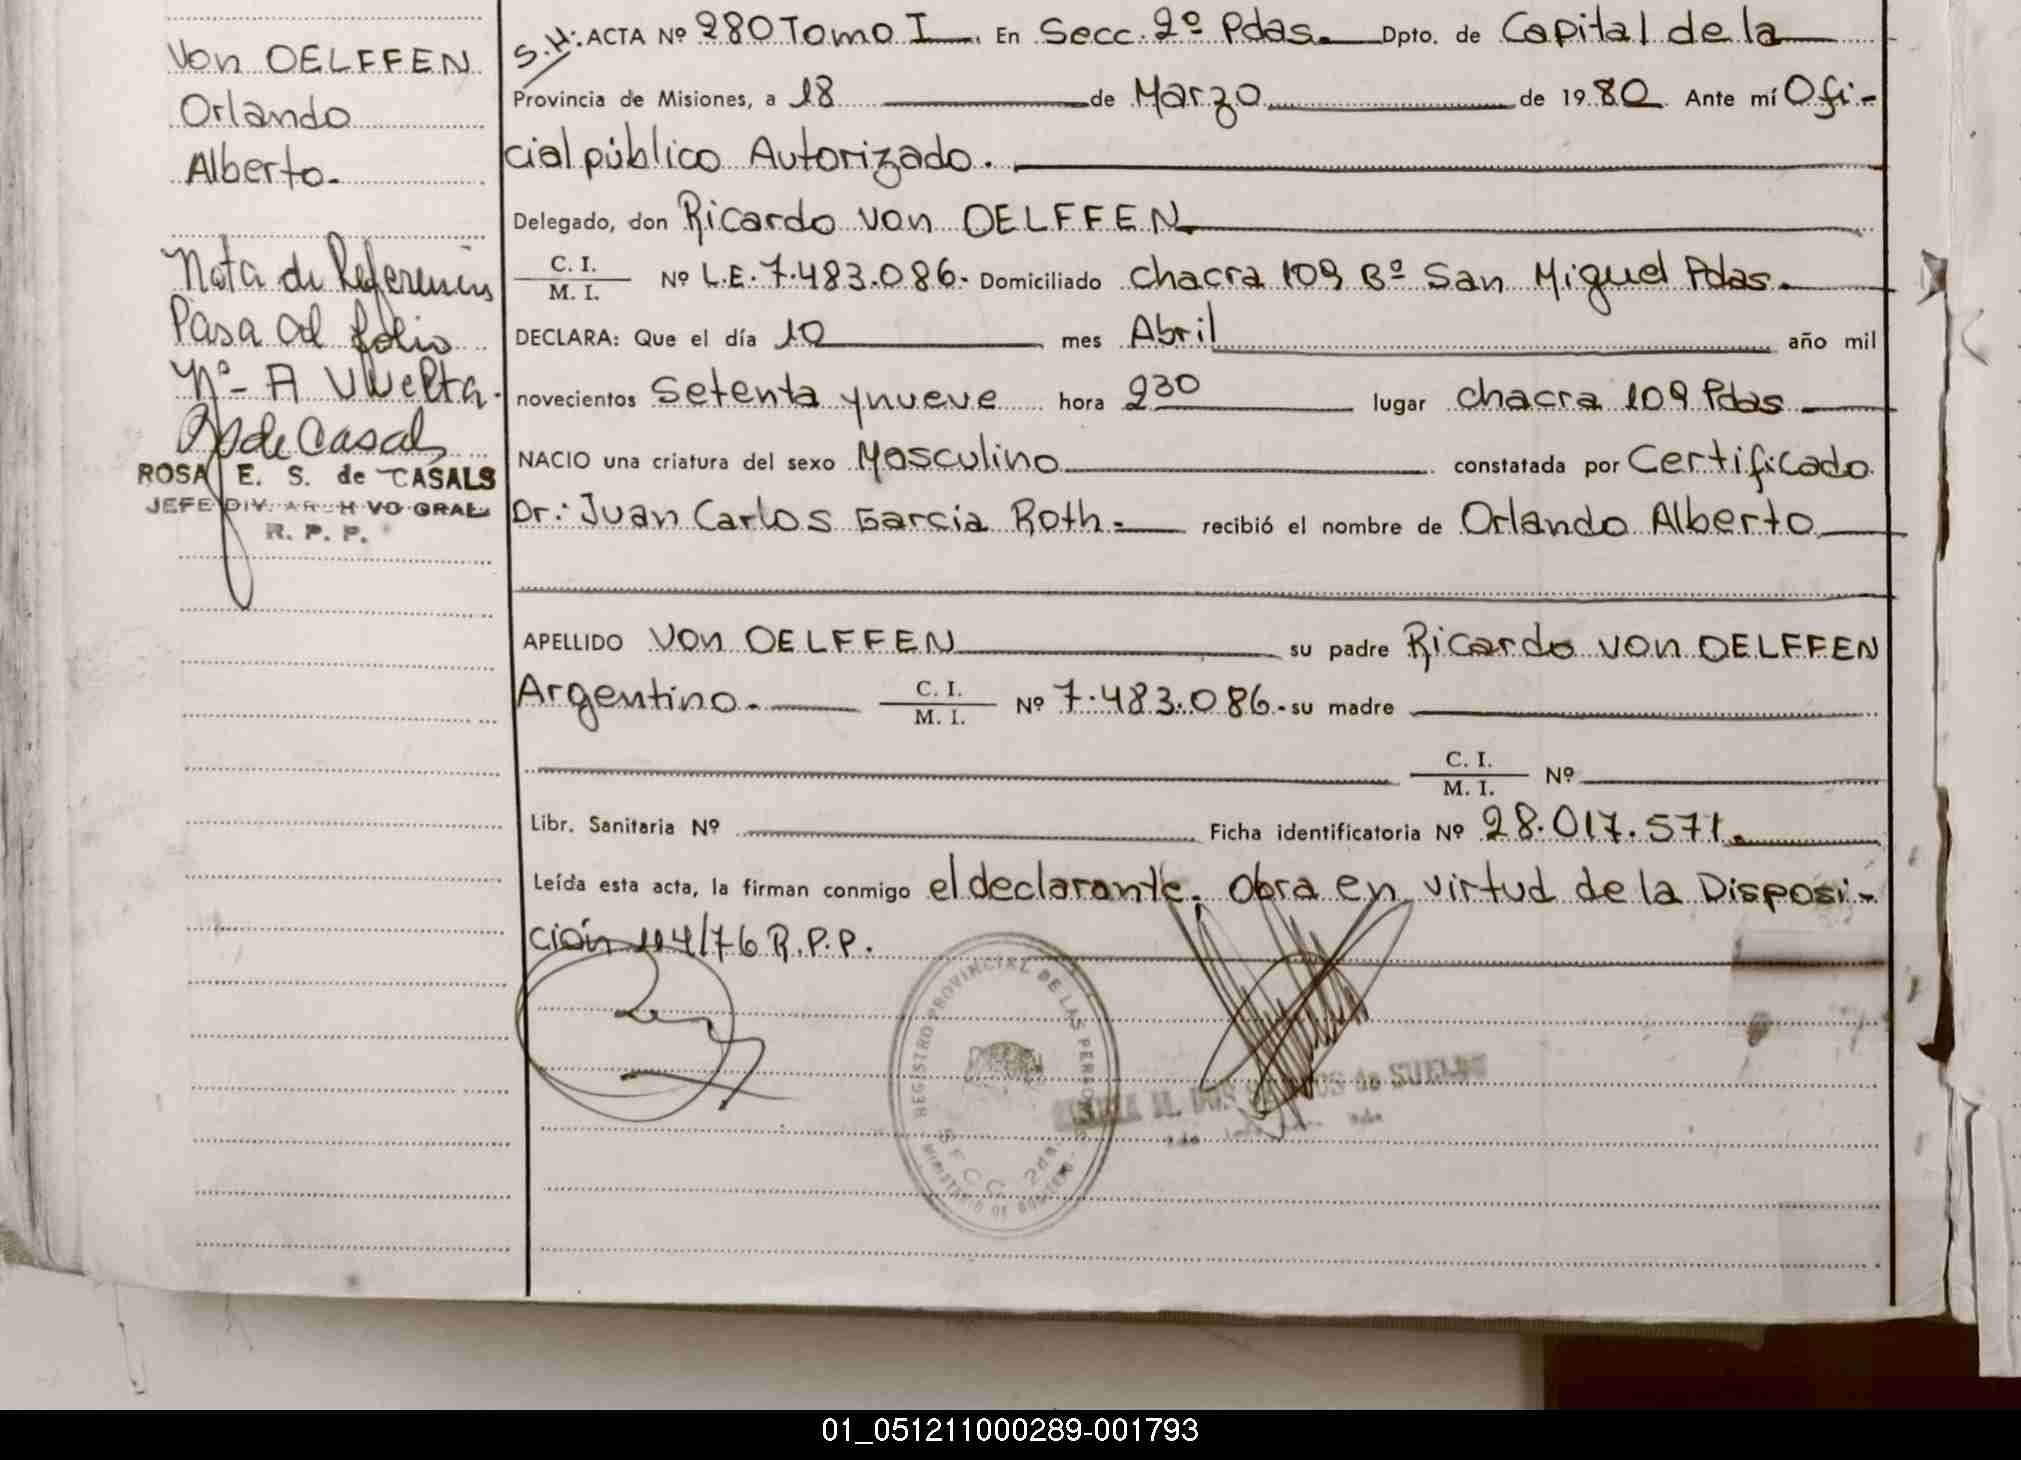 Von OELFFEN
Orlando
Alberto.-
Nota de Referencia
Pasa al folio
Nº- A Vuelta.
ROSA E. S. de CASALS
JEFE DIV. ARCHIVO GRAL.
R. P. P.
S.H. ACTA Nº 280 Tomo I. En Secc. 2º Pdas. Dpto. de Capital de la
Provincia de Misiones, a 18 de Marzo de 1980 Ante mí Ofi-
cial público Autorizado.
Delegado, don Ricardo von OELFFEN
C. I.
M. I. Nº L.E. 7.483.086.- Domiciliado chacra 109 Bº San Miguel Pdas.
DECLARA: Que el día 10 mes Abril año mil
novecientos Setenta y nueve hora 2 30 lugar chacra 109 Pdas
NACIO una criatura del sexo Masculino constatada por Certificado
Dr: Juan Carlos Garcia Roth.- recibió el nombre de Orlando Alberto
APELLIDO Von OELFFEN su padre Ricardo von OELFFEN
Argentino. C. I.
M. I. Nº 7.483.086.- su madre
C. I.
M. I. Nº
Libr. Sanitaria Nº Ficha identificatoria Nº 28.017.571.
Leída esta acta, la firman conmigo el declarante. Obra en virtud de la Disposi-
ción 114/76 R.P.P.
REGISTRO PROVINCIAL DE LAS PERSONAS
SECC. 2da.
MINISTERIO DE GOBIERNO
de SUELDO
01_051211000289-001793